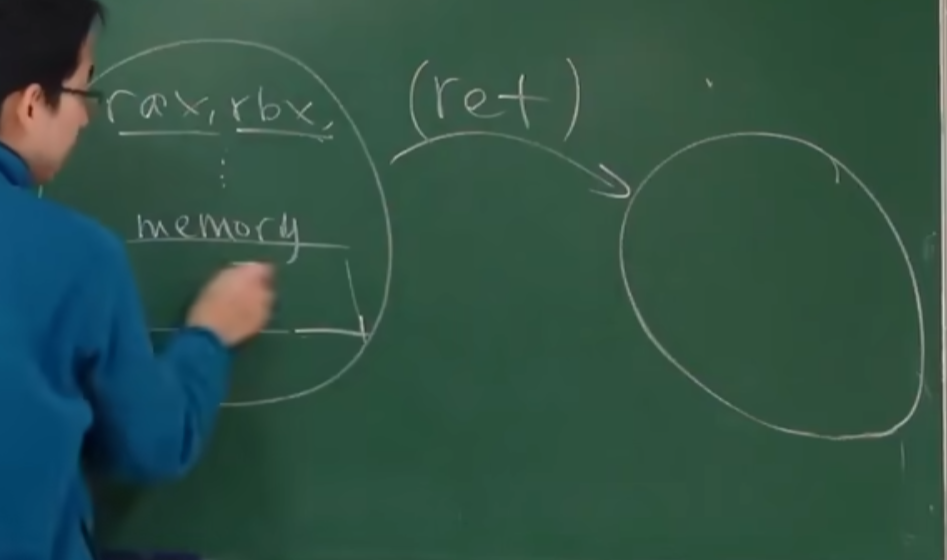 rax, rbx,
⋮
memory
(ret)